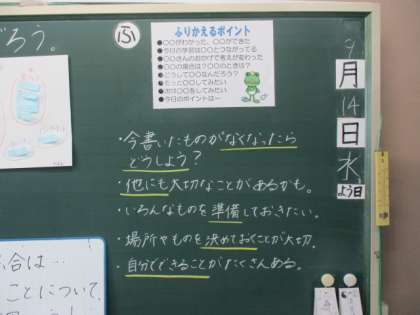 だろう。
ふ
ふりかえるポイント
●○○がわかった、○○ができた
●今日の学習は○○とつながってる
●○○さんのおかげで考えが変わった
●○○の場合は?○○のときは?
●どうして○○なんだろう?
●もっと○○してみたい
●次は○○をしてみたい
●今日のポイントは…
9
月
14
日
水
よう日
・今書いたものがなくなったら
どうしよう?
・他にも大切なことがあるかも。
・いろんなものを準備しておきたい。
・場所やものを決めておくことが大切。
・自分でできることがたくさんある。
合は…
ことについて、